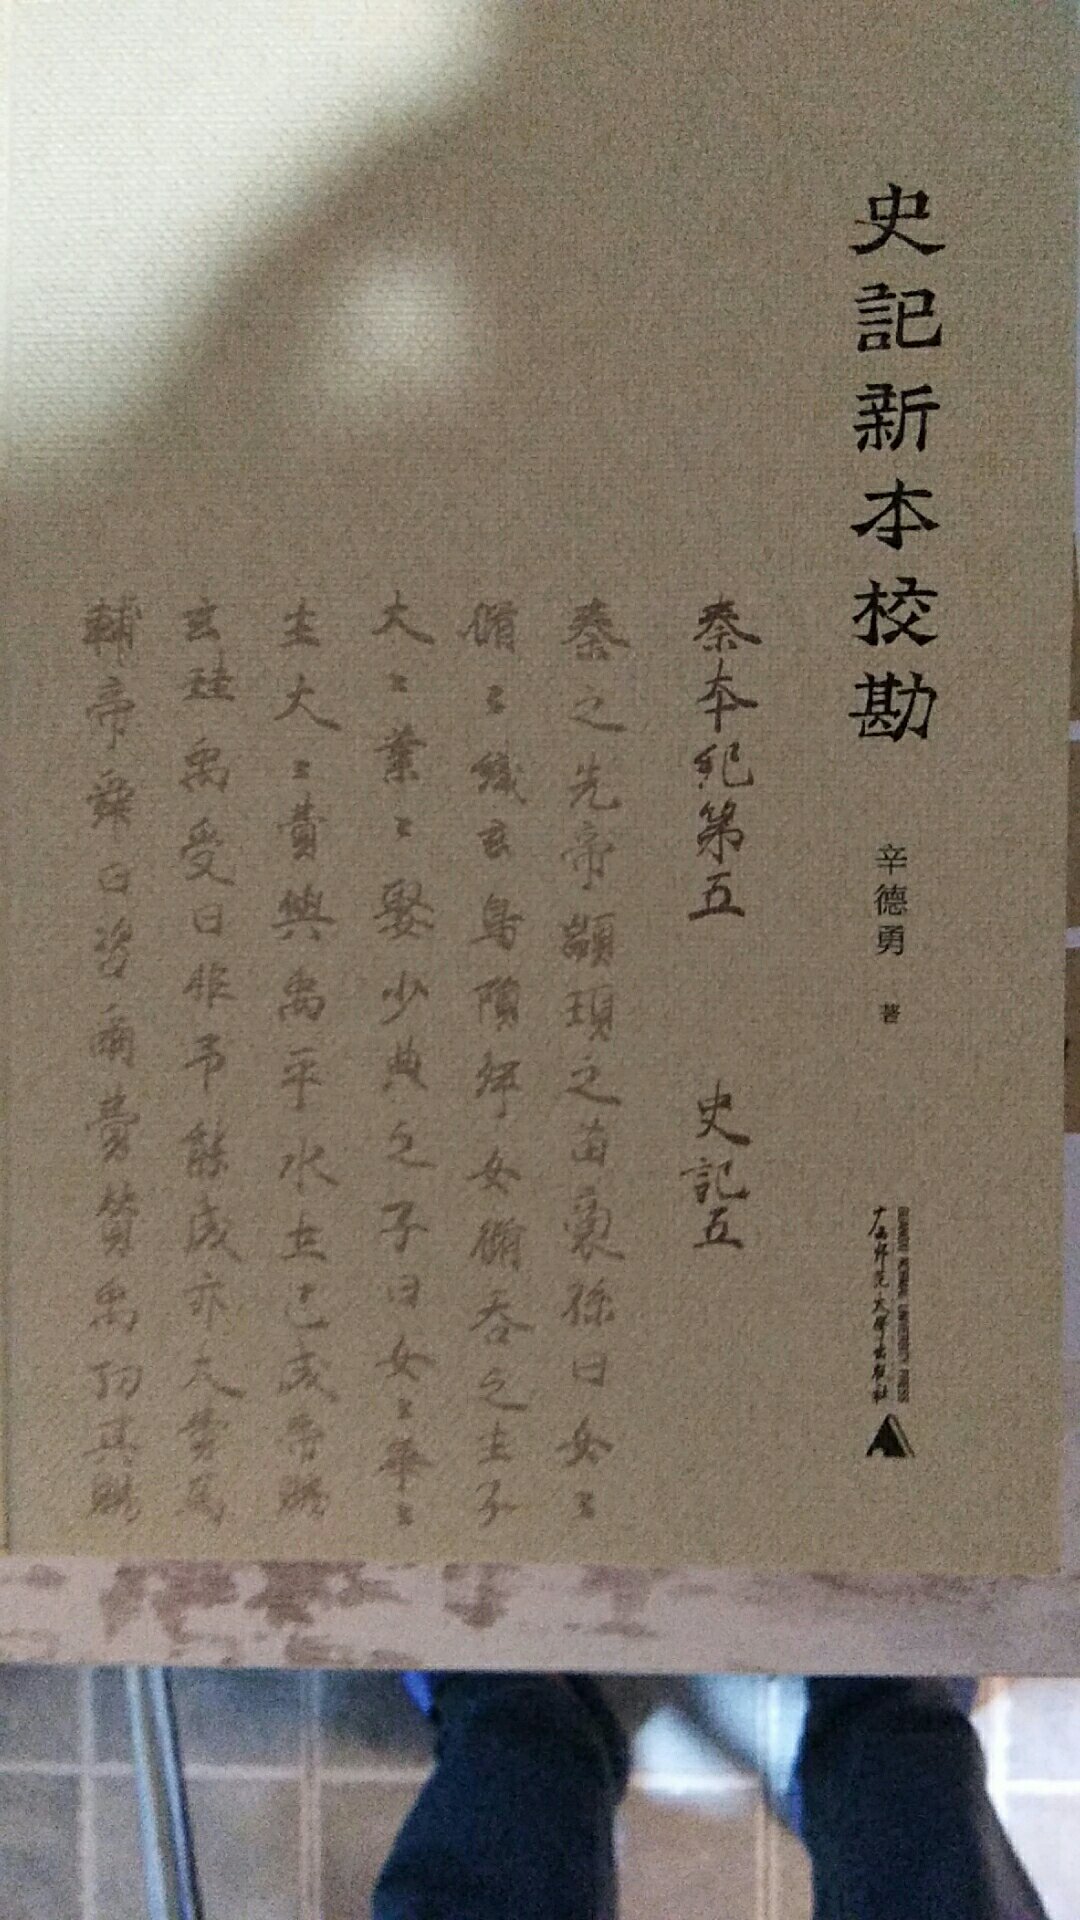 史記新本校勘
辛德勇 著
广西师范大学出版社
GUANGXI NORMAL UNIVERSITY PRESS
秦本紀第五 史記五
秦之先帝顓頊之苗裔孫曰女〻
脩〻織玄鳥隕卵女脩吞之生子
大〻業〻娶少典之子曰女〻華〻
生大〻費與禹平水土已成帝賜
玄珪禹受曰非予能成亦大費爲
輔帝舜曰咨爾費贊禹功其賜